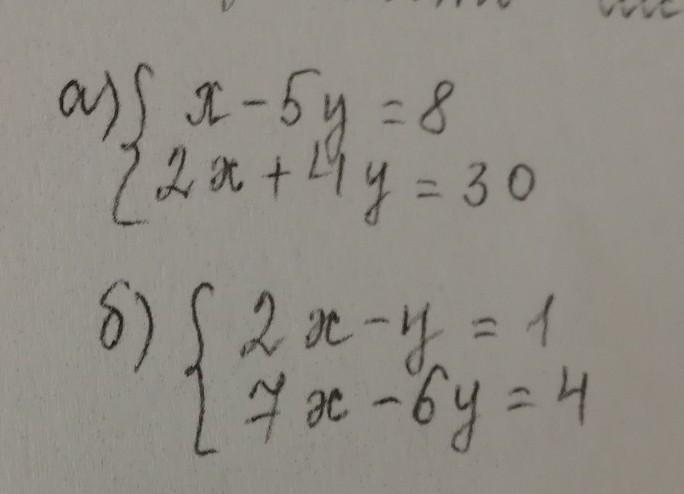 а) { x - 5y = 8
2x + 4y = 30
б) { 2x - y = 1
7x - 6y = 4